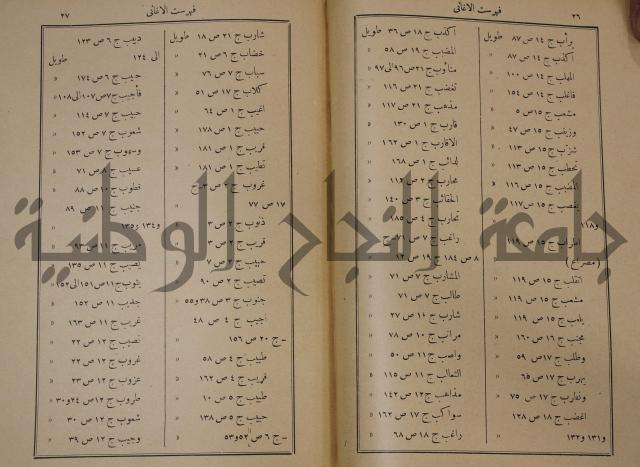 ٢٦ فهرست الاغانى
يرأب ج ١٤ ص ٨٧ طويل
أكذب ج ١٤ ص ٨٧ «
المهلب ج ١٤ ص ١٠٠ «
فاغلب ج ١٤ ص ١٥٤ «
مشعب ج ١٥ ص ٥ «
وزينب ج ١٥ ص ٤٧ «
ج ١٥ ص ١١٣ «
ج ١٥ ص ١١٣ «
ج ١٥ ص ١١٦ «
ج ١٥ ص ١١٧ «
و١١٨
ج ١٥ ص ١١٩
(مصراع)
اتقلب ج ١٥ ص ١١٩ «
مشعب ج ١٥ ص ١١٩ «
يلعب ج ١٥ ص ١١٩ «
مجنب ج ١٦ ص ١٦٠ «
وطلب ج ١٧ ص ٥٩ «
يهرب ج ١٧ ص ٦٥ «
وتفارب ج ١٧ ص ٧٥ «
اغضب ج ١٨ ص ١٢٨
و١٣١ و١٣٢ «
اكذب ج ١٨ ص ٣٦ طويل
المضاب ج ١٩ ص ٥٨ «
متأوب ج ٢١ ص ٩٦ الى ٩٧ «
تغضب ج ٢١ ص ١١٦ «
مذهب ج ٢١ ص ١١٧ «
قارب ج ١ ص ١٣٠ «
الاقارب ج ١ ص ١٦٢ «
ج ١ ص ١٦٨ «
محارب ج ٢ ص ١١٢ «
الحقائب ج ٣ ص ١٤٠ «
تحارب ج ٤ ص ١٨٥ «
راغب ج ٧ ص ٧١ ج
٨ ص ١٨٤ ج ١٩ ص ١٢
المشارب ج ٧ ص ٧١ «
طالب ج ٧ ص ٧١ «
شارب ج ١٠ ص ٢٧ «
مراتب ج ١٠ ص ٧٨ «
واصب ج ١١ ص ٥٠ «
الثعالب ج ١١ ص ١١٥ «
مذاهب ج ١٢ ص ١٤٢ «
سواكب ج ١٧ ص ١٦٢ «
راغب ج ١٨ ص ٦٨ «
فهرست الاغانى ٢٧
شارب ج ٢١ ص ١٨ طويل
خضاب ج ٦ ص ٢١ «
سباب ج ٧ ص ٧٦ «
كلاب ج ١٧ ص ٥١ «
اغيب ج ١ ص ٦٤ «
حبيب ج ١ ص ١٧٨ «
قريب ج ١ ص ١٨١ «
تطيب ج ١ ص ١٨١ «
غروب ج ٢ ص ٣ ج
١٧ ص ٧٧ «
ذنوب ج ٢ ص ٣ «
قريب ج ٢ ص ٣ «
حبيب ج ٢ ص ٧ «
نصيب ج ٢ ص ٩٠ «
جنوب ج ٣ ص ٣٨ و٥٥ «
اجيب ج ٤ ص ٤٨
ـ ج ٢٠ ص ١٥٦ «
طبيب ج ٤ ص ٥٨ «
قريب ج ٤ ص ١٦٢ «
طبيب ج ٥ ص ١٠ «
حبيب ج ٥ ص ١٣٨ «
ـ ج ٦ ص ٥٢ و٥٣ «
دبيب ج ٦ ص ١٢٣
الى ١٢٤ طويل
حبيب ج ٦ ص ١٧٤ «
فأجيب ج ٧ ص ١٠٧ الى ١٠٨ «
حبيب ج ٧ ص ١١٤ «
شعوب ج ٧ ص ١٥٢ «
وسهوب ج ٧ ص ١٥٣ «
عسيب ج ٨ ص ٧١ «
قطوب ج ١٠ ص ٨٨ «
جنيب ج ١١ ص ٨٩
و١٣٤ و١٣٥ «
ج ١١ ص ٩٣ «
نصيب ج ١١ ص ١٣٥ «
يثوب ج ١١ ص ١٥١ الى ١٥٢ «
جديب ج ١١ ص ١٥٢ «
غريب ج ١١ ص ١٦٣ «
نصيب ج ١٢ ص ٢٢ «
غروب ج ١٢ ص ٢٢ «
عزوب ج ١٢ ص ٢٣ «
طروب ج ١٢ ص ٢٤ و٣٠ «
شعوب ج ١٢ ص ٣٠ «
وجيب ج ١٢ ص ٣٩ «
جامعة النجاح الوطنية